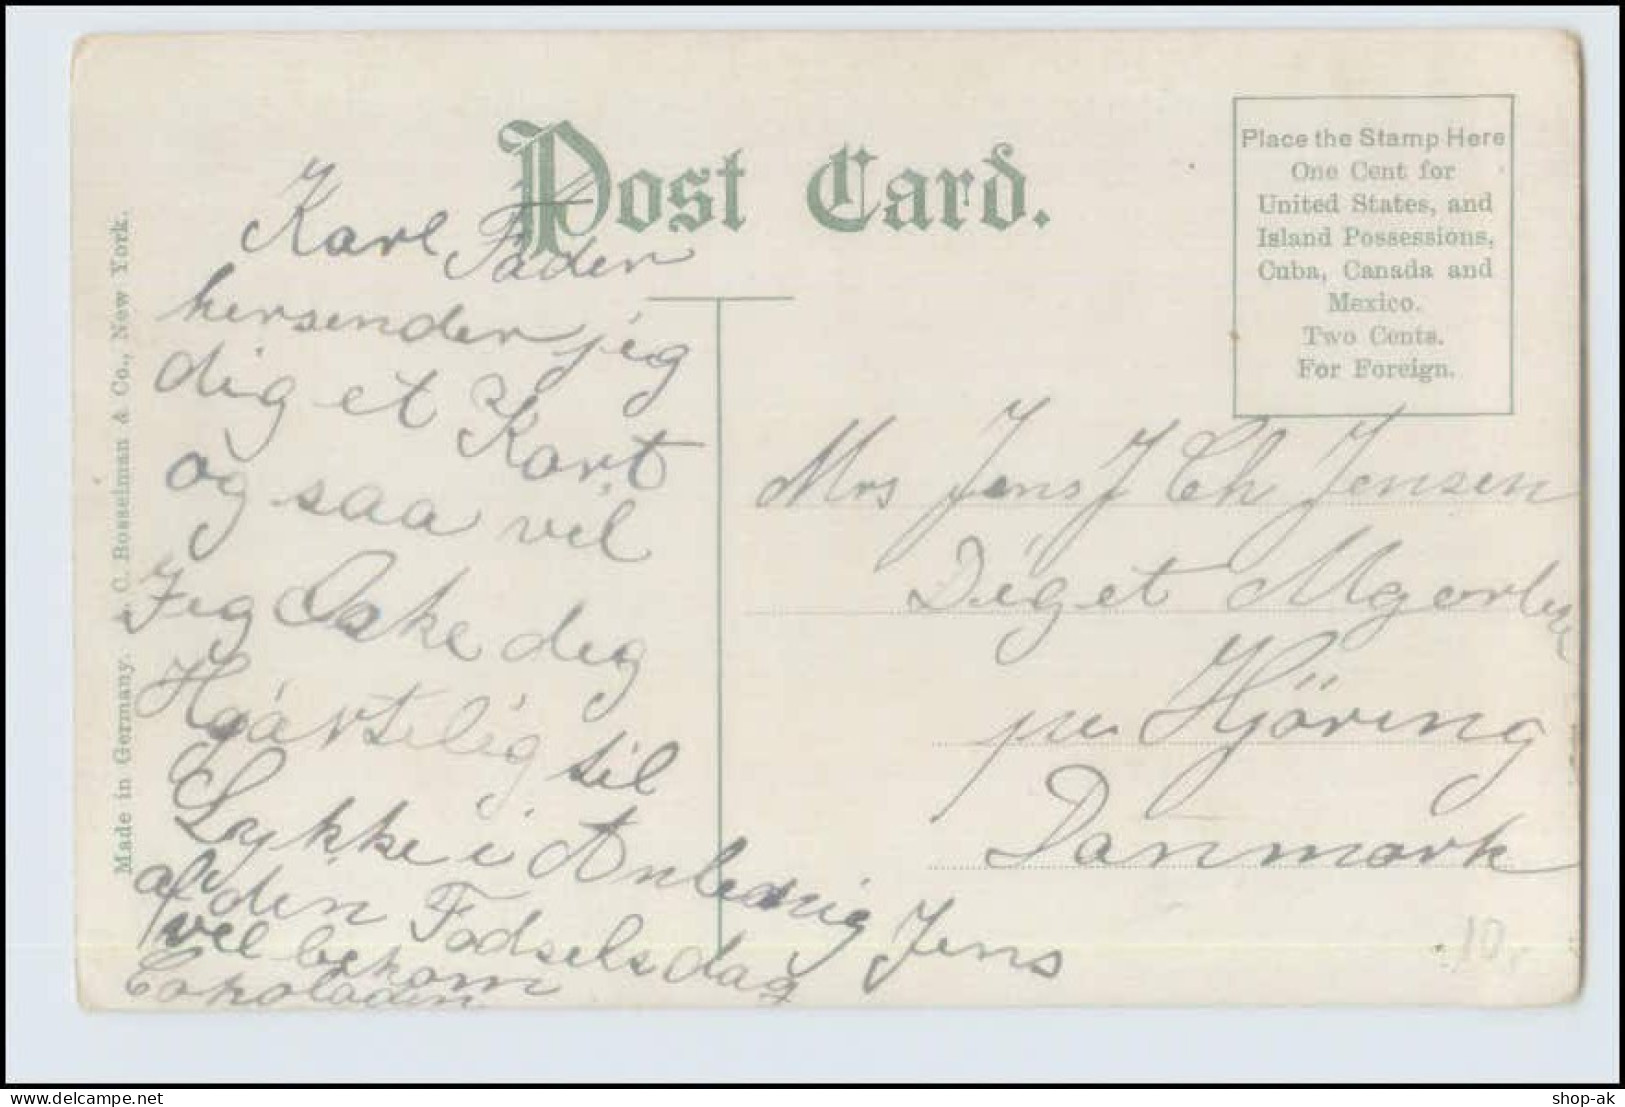 Post Card.
Place the Stamp Here
One Cent for
United States, and
Island Possessions,
Cuba, Canada and
Mexico.
Two Cents.
For Foreign.
Made in Germany. A. C. Bosselman & Co., New York.
Karl Fader
hersender jeg
dig et Kort
og saa vil
Jeg Onske dig
Hjærtelig til
Lykke i Anlednig
af den Fodselsdag
vel bekom
Cokoladen
Jens
Mrs Jens J Ch Jensen
Diget
pr Hjöring
Danmark
10.
shop-ak
www.delcampe.net